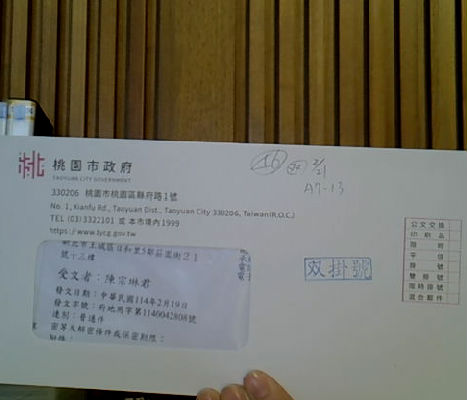 桃園市政府
TAOYUAN CITY GOVERNMENT
330206 桃園市桃園區縣府路1號
No. 1, Xianfu Rd., Taoyuan Dist., Taoyuan City 330206, Taiwan(R.O.C.)
TEL (03) 3322101 或 本市境內1999
https://www.tycg.gov.tw
號十三樓
受文者：陳宗琳君
發文日期：中華民國114年2月19日
發文字號：府地用字第1140042808號
速別：普通件
密等及解密條件或保密期限：
A7-13
双掛號
公文交換
印刷品
限時
平信
掛號
雙掛號
限時掛號
混合郵件